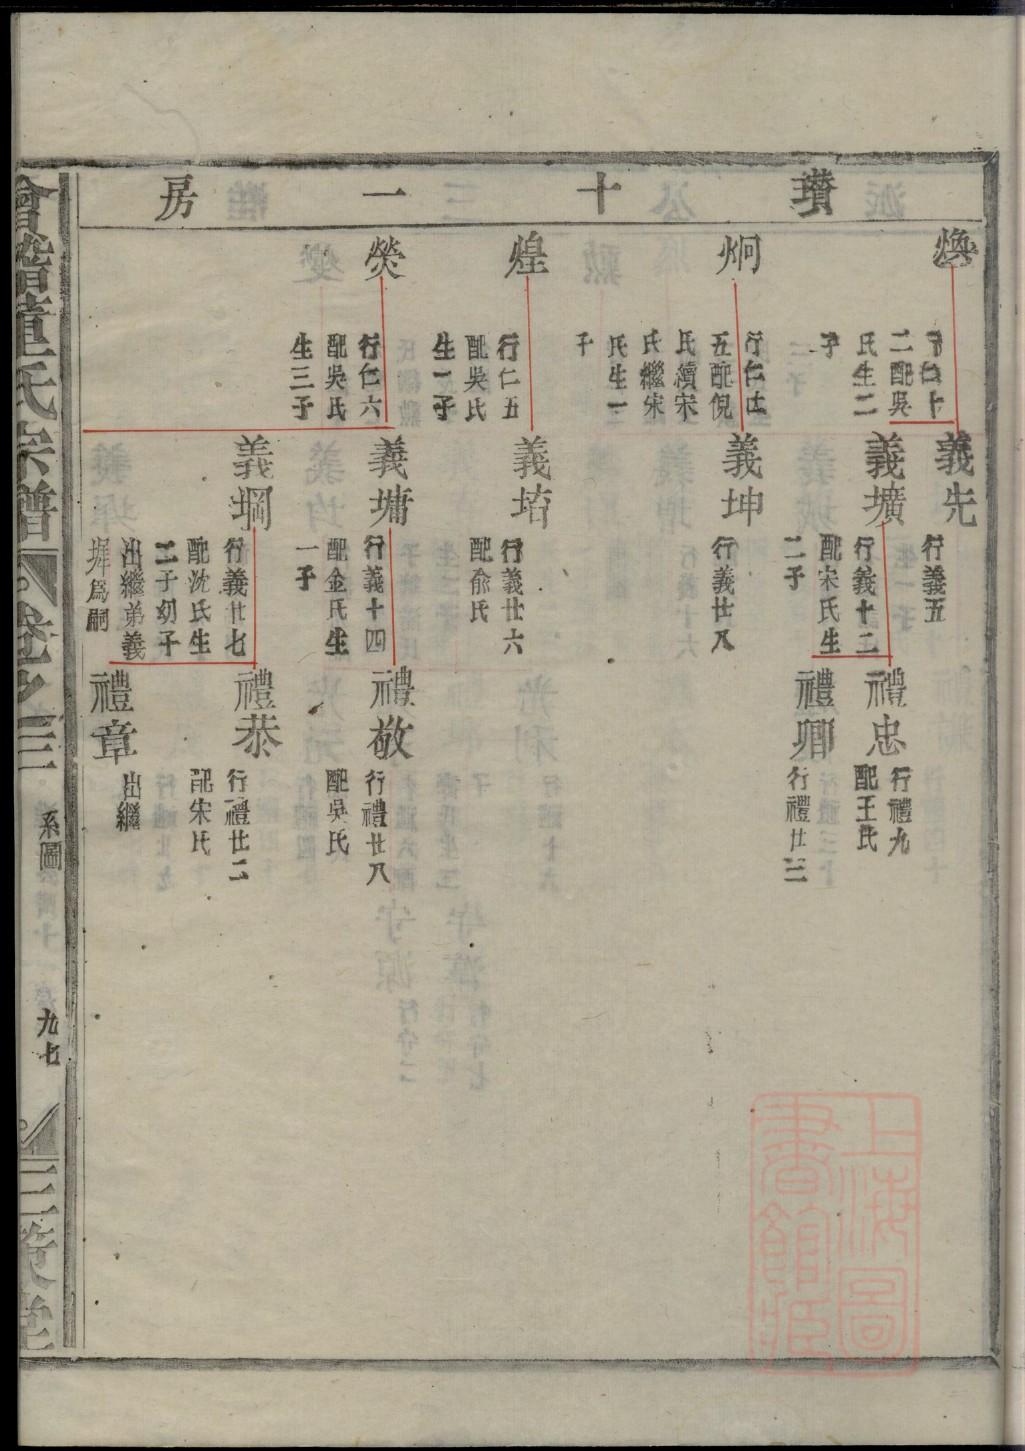 瓚十一房
煥
行仁十
二配吳
氏生二
子
炯
行仁廿
五配倪
氏續宋
氏繼宋
氏生一
子
煌
行仁五
配吳氏
生一子
熒
行仁六
配吳氏
生三子
義先
行義五
義壙
行義十二
配宋氏生
二子
義坤
行義廿八
義垥
行義廿六
配俞氏
義墉
行義十四
配金氏生
一子
義堈
行義廿七
配沈氏生
二子幼子
出繼弟義
墀爲嗣
禮忠
行禮九
配王氏
禮卿
行禮廿三
禮敬
行禮廿八
配吳氏
禮恭
行禮廿二
配宋氏
禮章
出繼
會稽董氏宗譜
卷之三
系圖
九七
三策堂
上海圖
書館藏